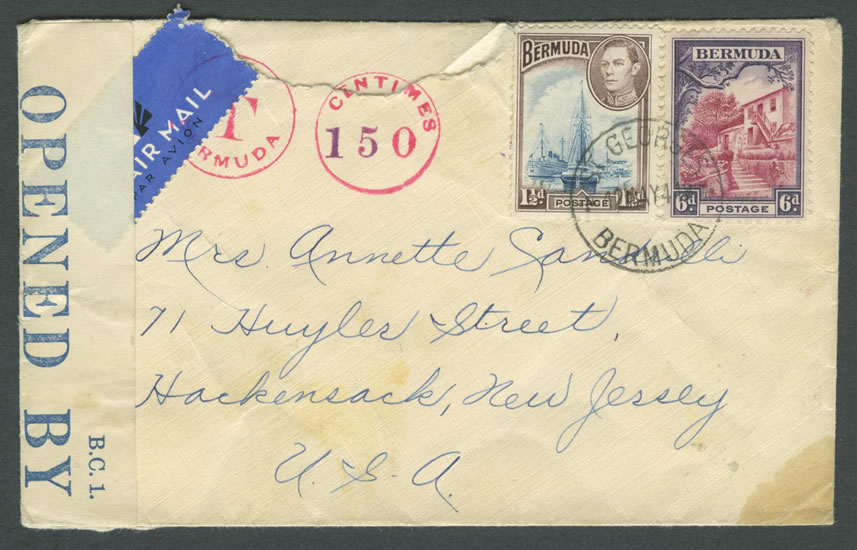 OPENED BY
B.C. 1.
AIR MAIL
PAR AVION
T
BERMUDA
CENTIMES
150
BERMUDA
1½d
POSTAGE
BERMUDA
6d 6d
POSTAGE
ST. GEORGE'S
BERMUDA
Mrs. Annette
71 Huyler Street,
Hackensack, New Jersey
U.S.A.